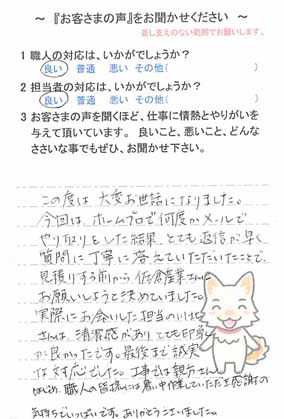 ～ 『お客さまの声』をお聞かせください ～
差し支えのない範囲でお願いします。
1 職人の対応は、いかがでしょうか？
良い 普通 悪い その他( )
2 担当者の対応は、いかがでしょうか？
良い 普通 悪い その他( )
3 お客さまの声を聞くほど、仕事に情熱とやりがいを
与えて頂いています。 良いこと、悪いこと、どんな
ささいな事でもぜひ、お聞かせ下さい。
この度は 大変お世話になりました。
今回は ホームプロで何度かメールで
やり取りをした結果 とても返信が早く
質問に丁寧に答えていただいたことで、
見積りする前から 佐倉産業さんに
お願いしようと決めていました。
実際にお会いした担当の
さんは、清潔感があり とても印象
が良かったです。最後まで誠実
な対応でした。工事では親方さん
はじめ、職人の皆様には暑い中作業していただき感謝の
気持ちでいっぱいです。ありがとうございました。